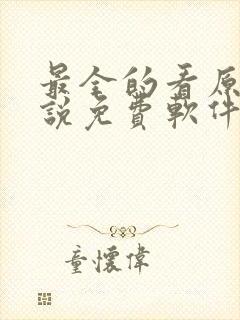 最全的看原
說免費軟件
童懷偉